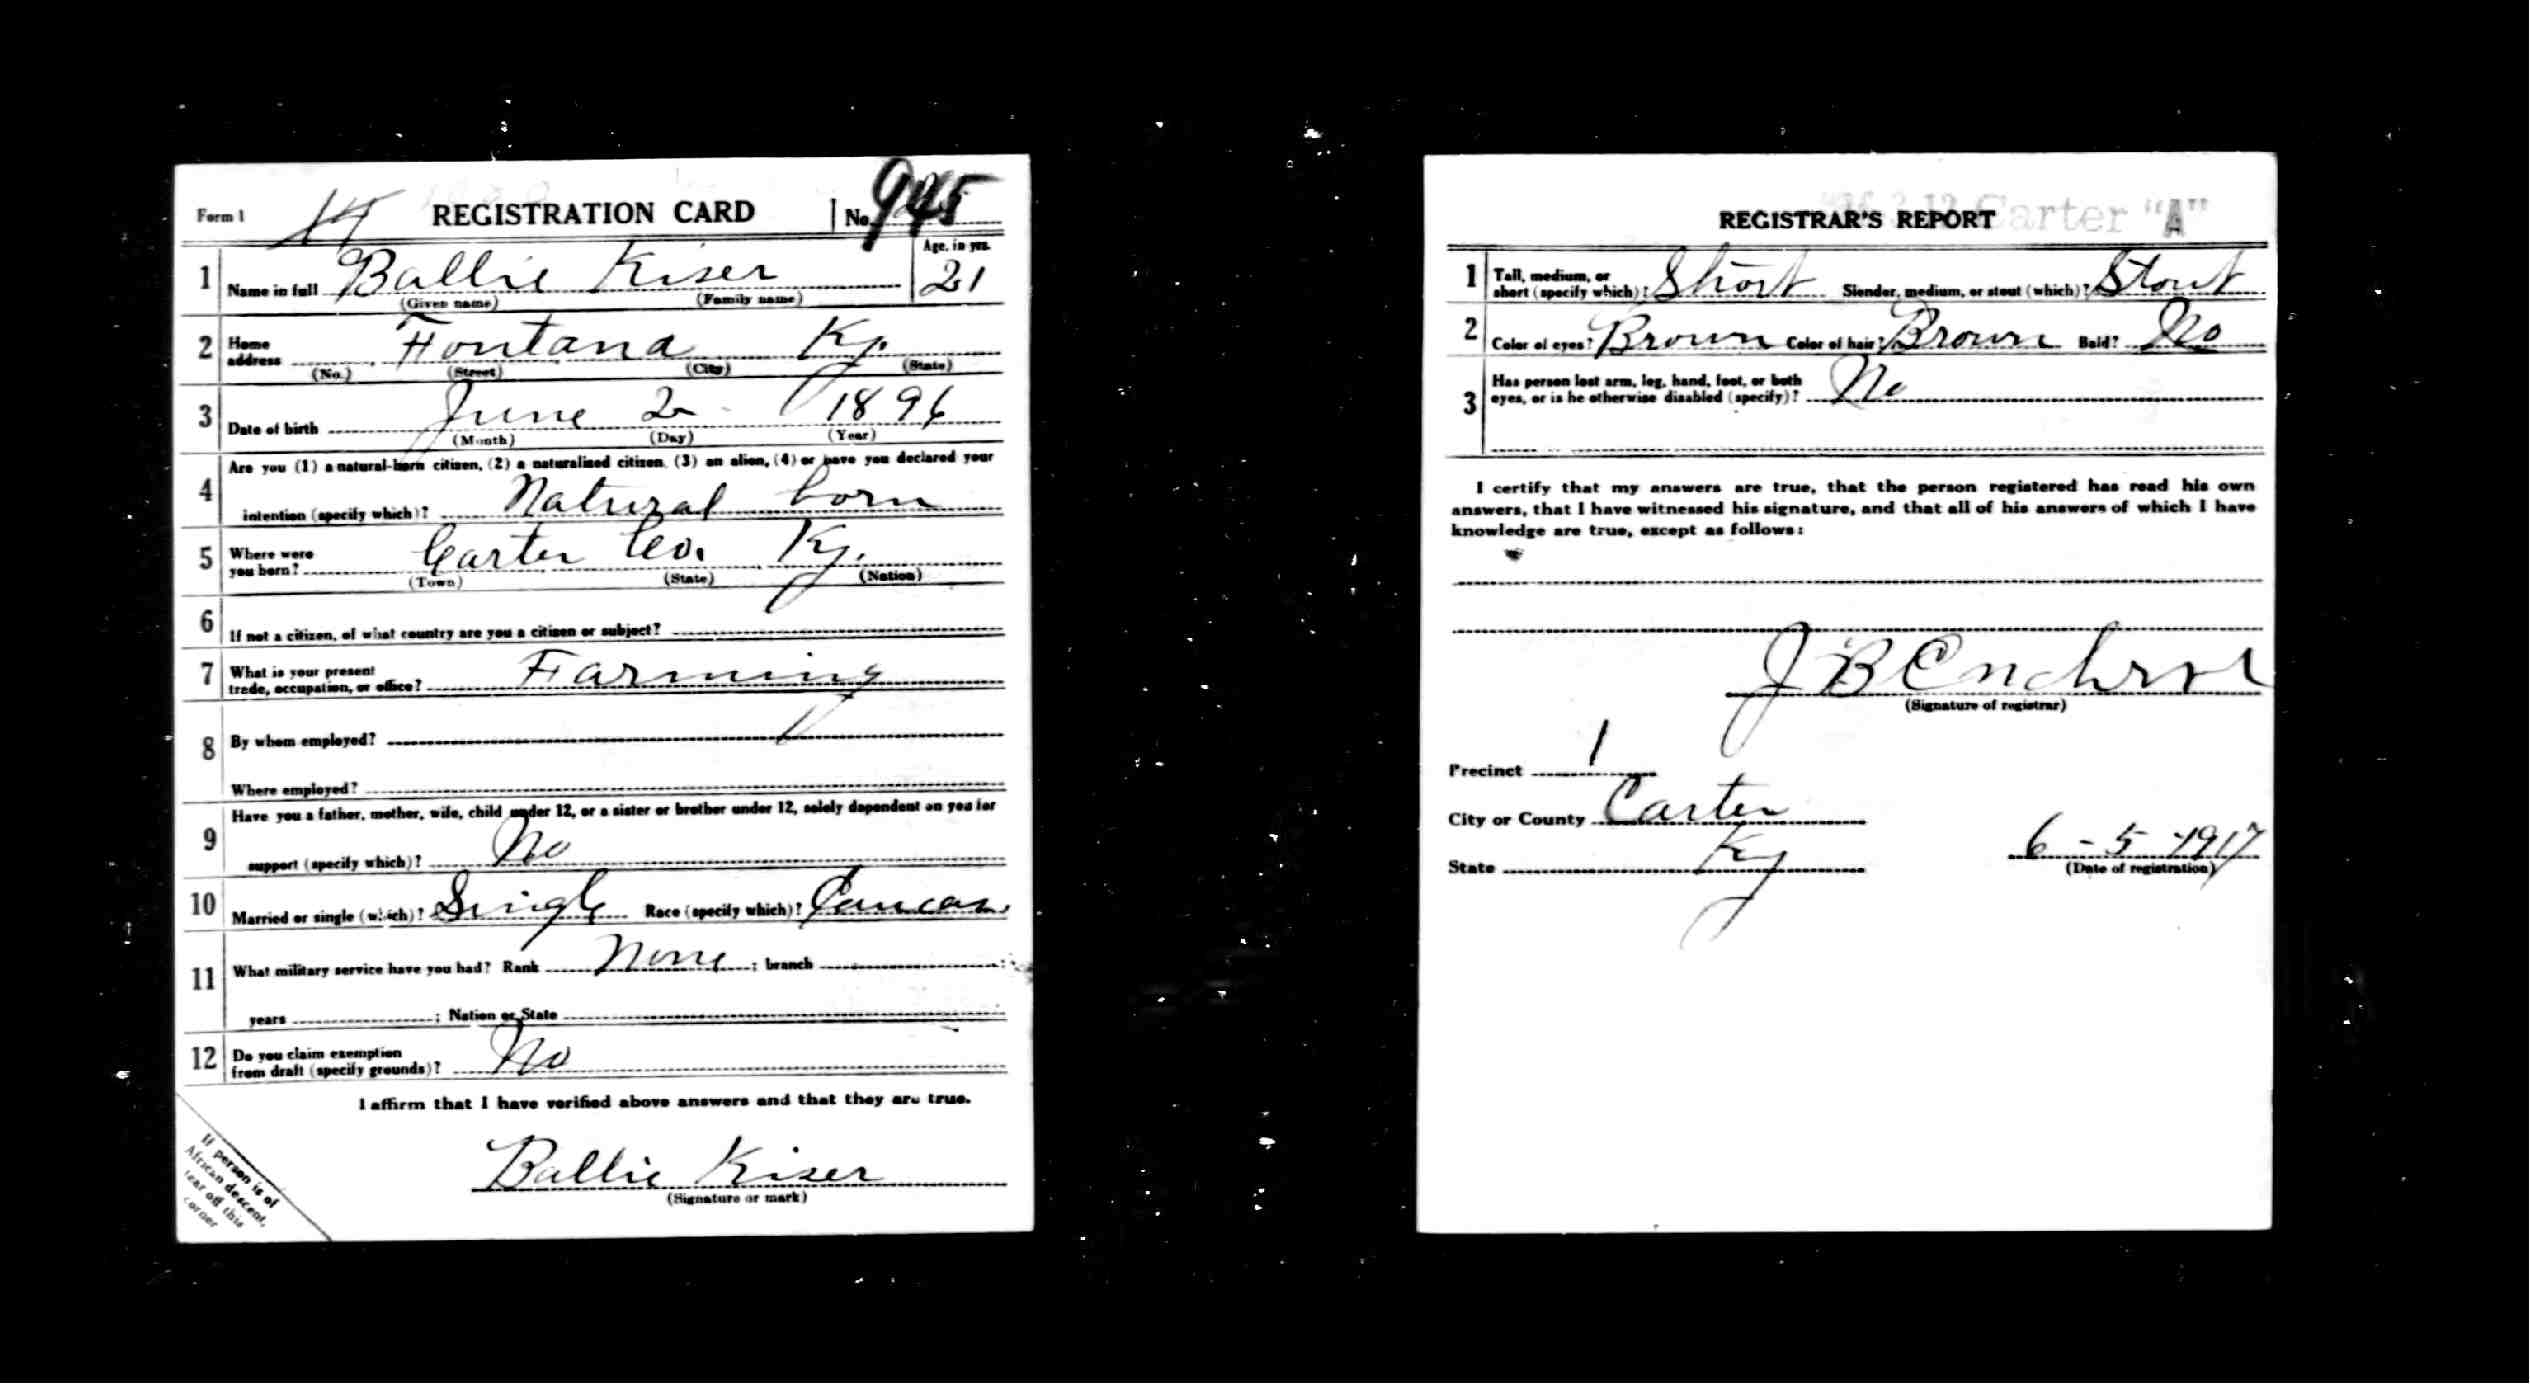 Form 1 REGISTRATION CARD No. 945
1 Name in full Ballie Kiser Age, in yrs. 21
(Given name) (Family name)
2 Home address Fontana Ky.
(No.) (Street) (City) (State)
3 Date of birth June 2 1896
(Month) (Day) (Year)
4 Are you (1) a natural-born citizen, (2) a naturalized citizen, (3) an alien, (4) or have you declared your
intention (specify which)? Natural born
5 Where were you born? Carter Co. Ky.
(Town) (State) (Nation)
6 If not a citizen, of what country are you a citizen or subject?
7 What is your present
trade, occupation, or office? Farming
8 By whom employed?
Where employed?
9 Have you a father, mother, wife, child under 12, or a sister or brother under 12, solely dependent on you for
support (specify which)? No
10 Married or single (which)? Single Race (specify which)?
11 What military service have you had? Rank None ; branch ;
years ; Nation or State
12 Do you claim exemption
from draft (specify grounds)? No
I affirm that I have verified above answers and that they are true.
Ballie Kiser
(Signature or mark)
If person is of
African descent,
tear off this
corner
Carter "A"
REGISTRAR'S REPORT
1 Tall, medium, or
short (specify which)? Short Slender, medium, or stout (which)? Stout
2 Color of eyes? Brown Color of hair? Brown Bald? No
3 Has person lost arm, leg, hand, foot, or both
eyes, or is he otherwise disabled (specify)? No
I certify that my answers are true, that the person registered has read his own
answers, that I have witnessed his signature, and that all of his answers of which I have
knowledge are true, except as follows:
J B
(Signature of registrar)
Precinct 1
City or County Carter
State Ky 6-5-1917
(Date of registration)